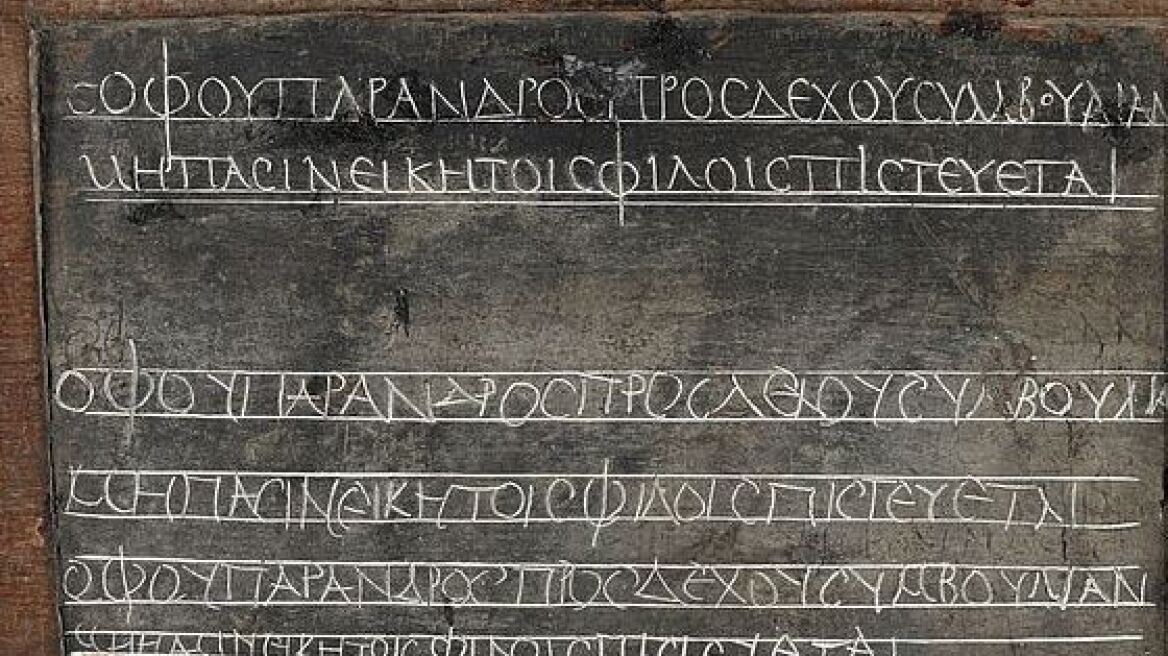 ϹΟΦΟΥΠΑΡΑΝΔΡΟϹΠΡΟϹΔΕΧΟΥϹΥΜΒΟΥΛΙΑΝ
ΜΗΠΑϹΙΝΕΙΚΗΤΟΙϹΦΙΛΟΙϹΠΙϹΤΕΥΕΤΑΙ
ΟΦΟΥΠΑΡΑΝΔΡΟϹΠΡΟϹΔΕΧΟΥϹΥΜΒΟΥΛΙΑ
ΜΗΠΑϹΙΝΕΙΚΗΤΟΙϹΦΙΛΟΙϹΠΙϹΤΕΥΕΤΑΙ
ΟΦΟΥΠΑΡΑΝΔΡΟϹΠΡΟϹΔΕΧΟΥϹΥΜΒΟΥΛΙΑΝ